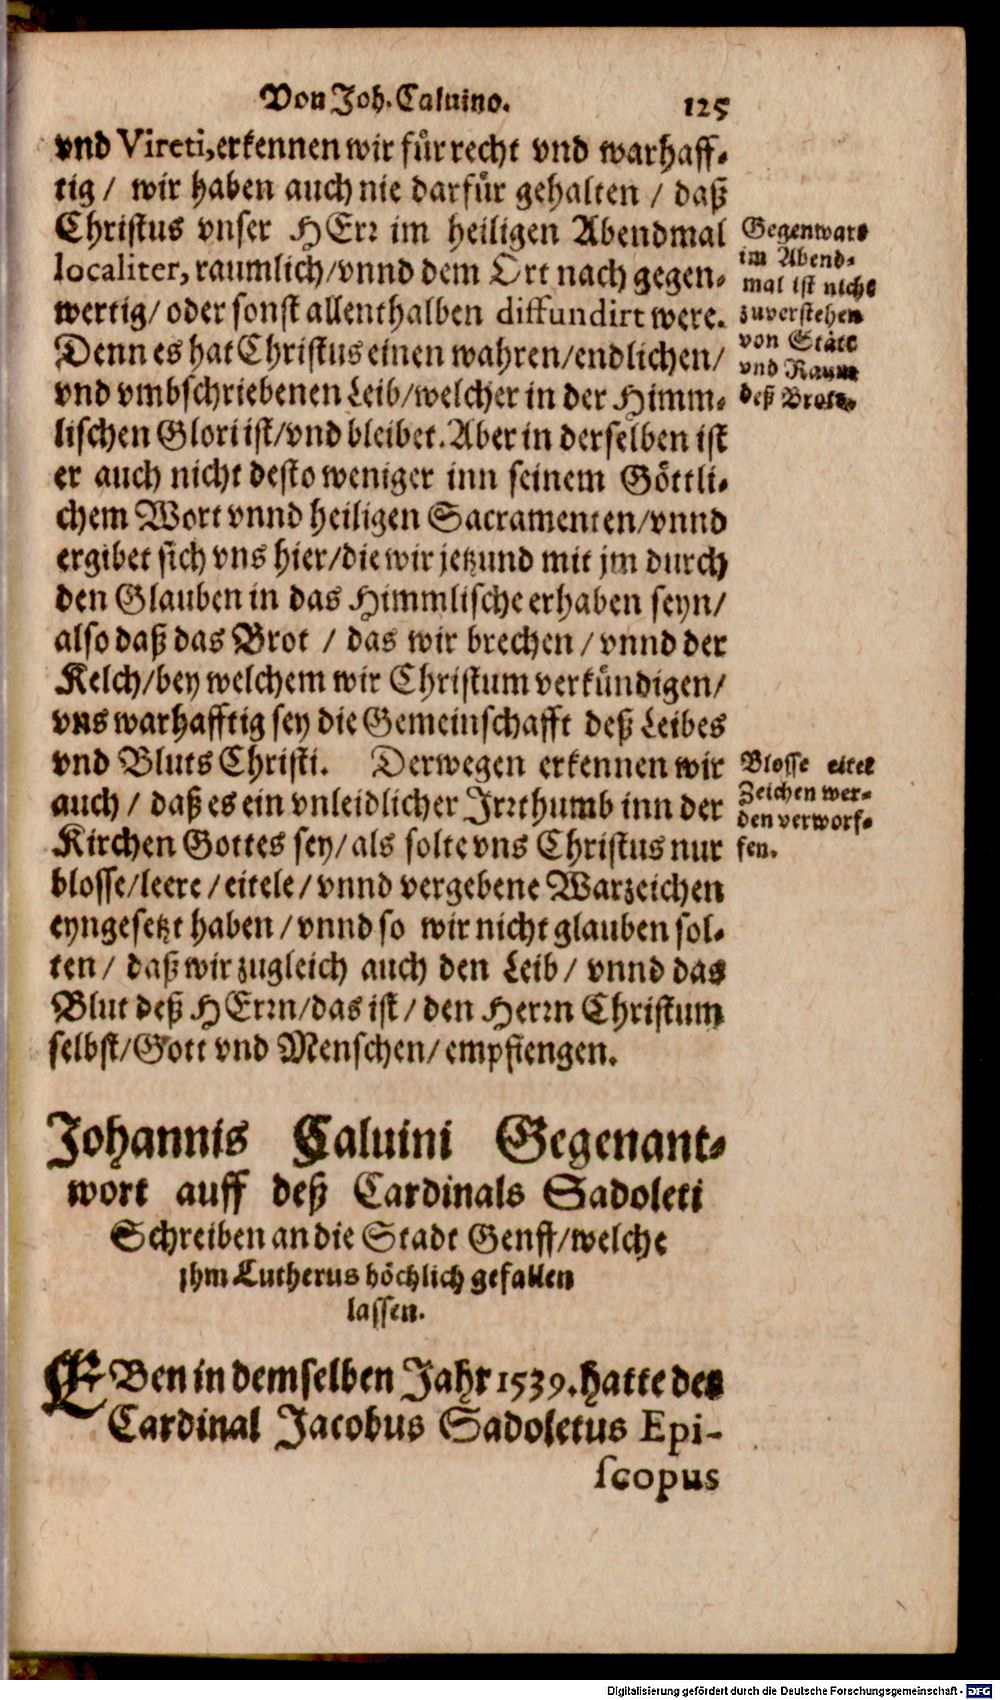 Von Joh. Caluino. 125
vnd Vireti, erkennen wir für recht vnd warhaff-
tig / wir haben auch nie darfür gehalten / daß
Christus vnser HErr im heiligen Abendmal
localiter, raumlich / vnnd dem Ort nach gegen-
wertig / oder sonst allenthalben diffundirt were.
Denn es hat Christus einen wahren / endlichen /
vnd vmbschriebenen Leib / welcher in der Himm-
lischen Glori ist / vnd bleibet. Aber in derselben ist
er auch nicht desto weniger inn seinem Göttli-
chem Wort vnnd heiligen Sacramenten / vnnd
ergibet sich vns hier / die wir jetzund mit jm durch
den Glauben in das Himmlische erhaben seyn /
also daß das Brot / das wir brechen / vnnd der
Kelch / bey welchem wir Christum verkündigen /
vns warhafftig sey die Gemeinschafft deß Leibes
vnd Bluts Christi. Derwegen erkennen wir
auch / daß es ein vnleidlicher Irrthumb inn der
Kirchen Gottes sey / als solte vns Christus nur
blosse / leere / eitele / vnnd vergebene Warzeichen
eyngesetzt haben / vnnd so wir nicht glauben sol-
ten / daß wir zugleich auch den Leib / vnnd das
Blut deß HErrn / das ist / den Herrn Christum
selbst / Gott vnd Menschen / empfiengen.
Gegenwart
im Abend-
mal ist nicht
zuverstehen
von Stätt
vnd Raum
deß Brots.
Blosse eitel
Zeichen wer-
den verworf-
fen.
Johannis Caluini Gegenant-
wort auff deß Cardinals Sadoleti
Schreiben an die Stadt Genff / welche
jhm Lutherus höchlich gefallen
lassen.
EBen in demselben Jahr 1539. hatte der
Cardinal Jacobus Sadoletus Epi-
scopus
Digitalisierung gefördert durch die Deutsche Forschungsgemeinschaft - DFG